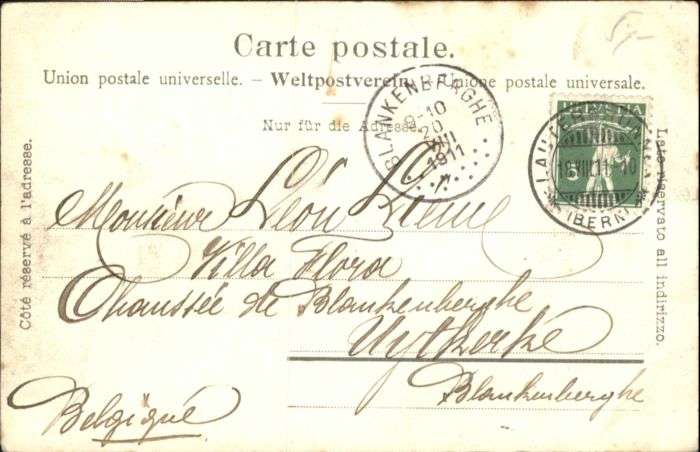 5,-
Carte postale.
Union postale universelle. – Weltpostverein. – Unione postale universale.
Nur für die Adresse.
Côté réservé à l'adresse.
Lato riservato all indirizzo.
BLANKENBERGHE
9-10
20
VIII
1911
HELVETIA
5
LAUTERBRUNNEN
19.VIII.11 -10
(BERN)
Monsieur Léon
Villa Flora
Chaussée de Blankenberghe
Uytkerke
Blankenberghe
Belgique